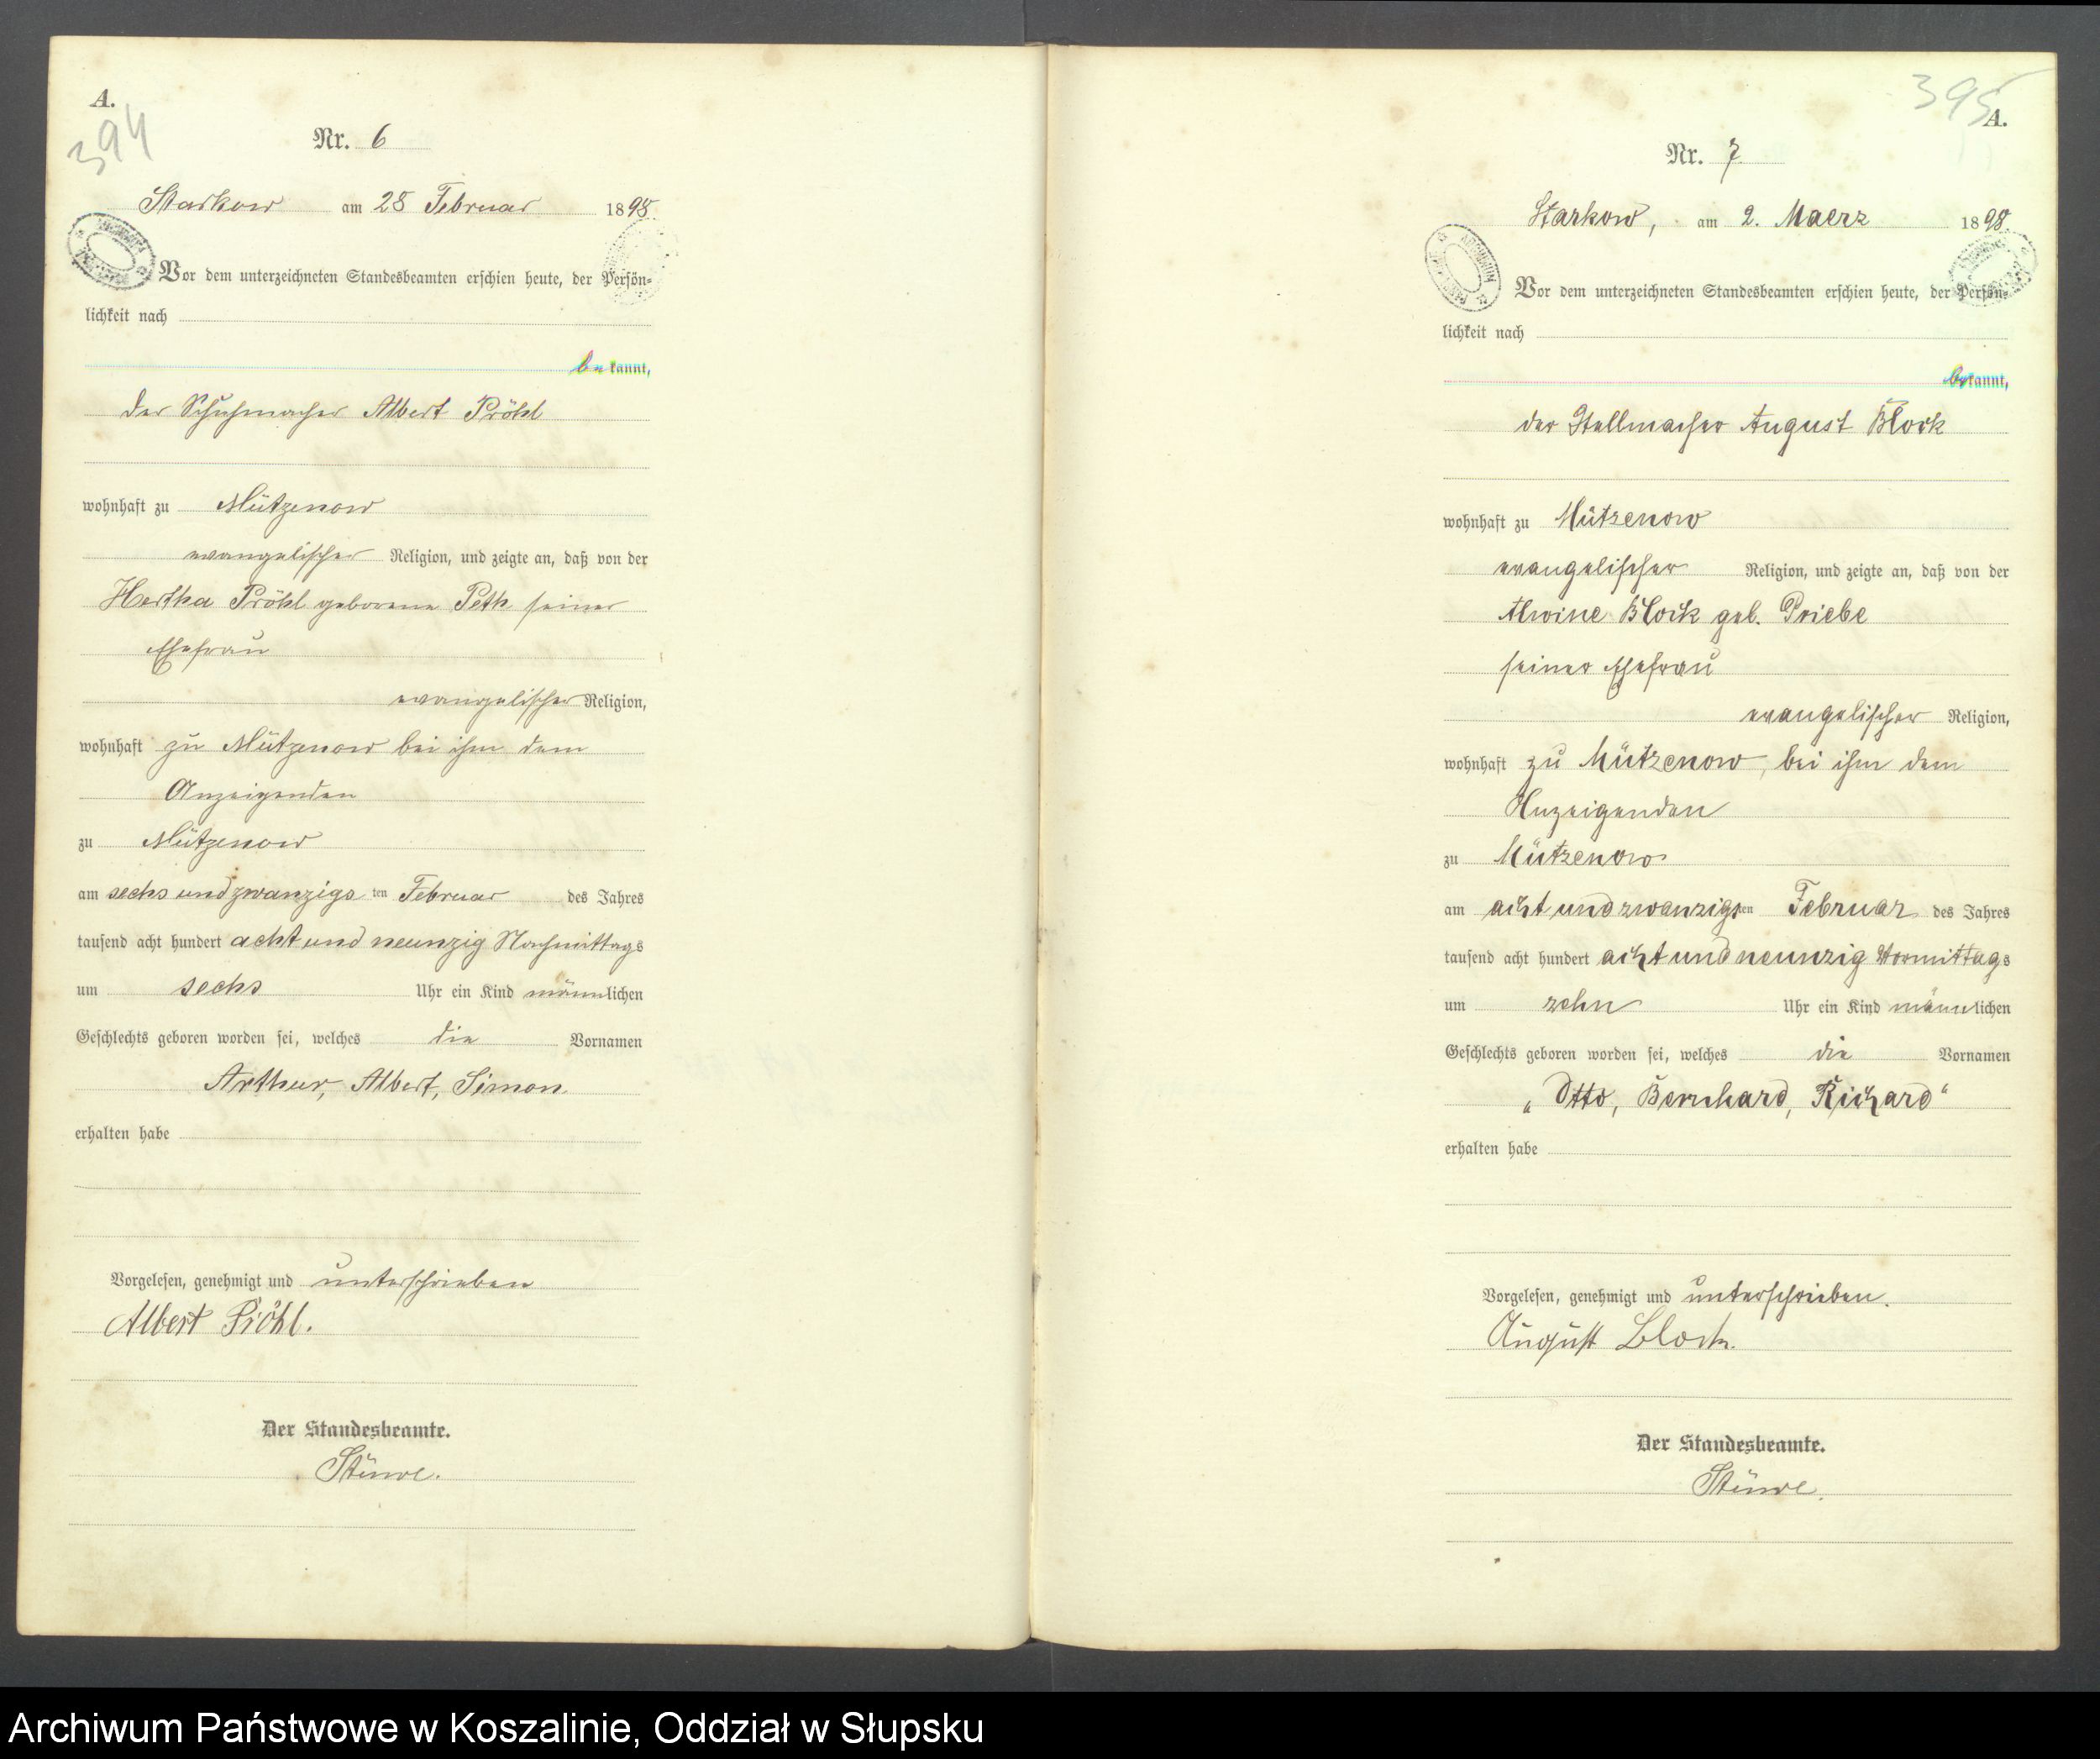 A.
394
Nr. 6
Starkow am 28 Februar 1898.
Vor dem unterzeichneten Standesbeamten erschien heute, der Persön-
lichkeit nach
bekannt,
der Schuhmacher Albert Pröhl
wohnhaft zu Mützenow
evangelischer Religion, und zeigte an, daß von der
Hertha Pröhl geborene Peth seiner
Ehefrau
evangelischer Religion,
wohnhaft zu Mützenow bei ihm dem
Anzeigenden
zu Mützenow
am sechs und zwanzigs ten Februar des Jahres
tausend acht hundert acht und neunzig Nachmittags
um sechs Uhr ein Kind männlichen
Geschlechts geboren worden sei, welches die Vornamen
Arthur, Albert, Simon
erhalten habe
Vorgelesen, genehmigt und unterschrieben
Albert Pröhl.
Der Standesbeamte.
Stüwe.
395
A.
Nr. 7
Starkow, am 2. Maerz 1898.
Vor dem unterzeichneten Standesbeamten erschien heute, der Persön-
lichkeit nach
bekannt,
der Stellmacher August Block
wohnhaft zu Mützenow
evangelischer Religion, und zeigte an, daß von der
Alwine Block geb. Priebe
seiner Ehefrau
evangelischer Religion,
wohnhaft zu Mützenow, bei ihm dem
Anzeigenden
zu Mützenow
am acht und zwanzigsten Februar des Jahres
tausend acht hundert acht und neunzig Vormittags
um zehn Uhr ein Kind männlichen
Geschlechts geboren worden sei, welches die Vornamen
„Otto, Bernhard, Richard“
erhalten habe
Vorgelesen, genehmigt und unterschrieben.
August Block.
Der Standesbeamte.
Stüwe.
Archiwum Państwowe w Koszalinie, Oddział w Słupsku